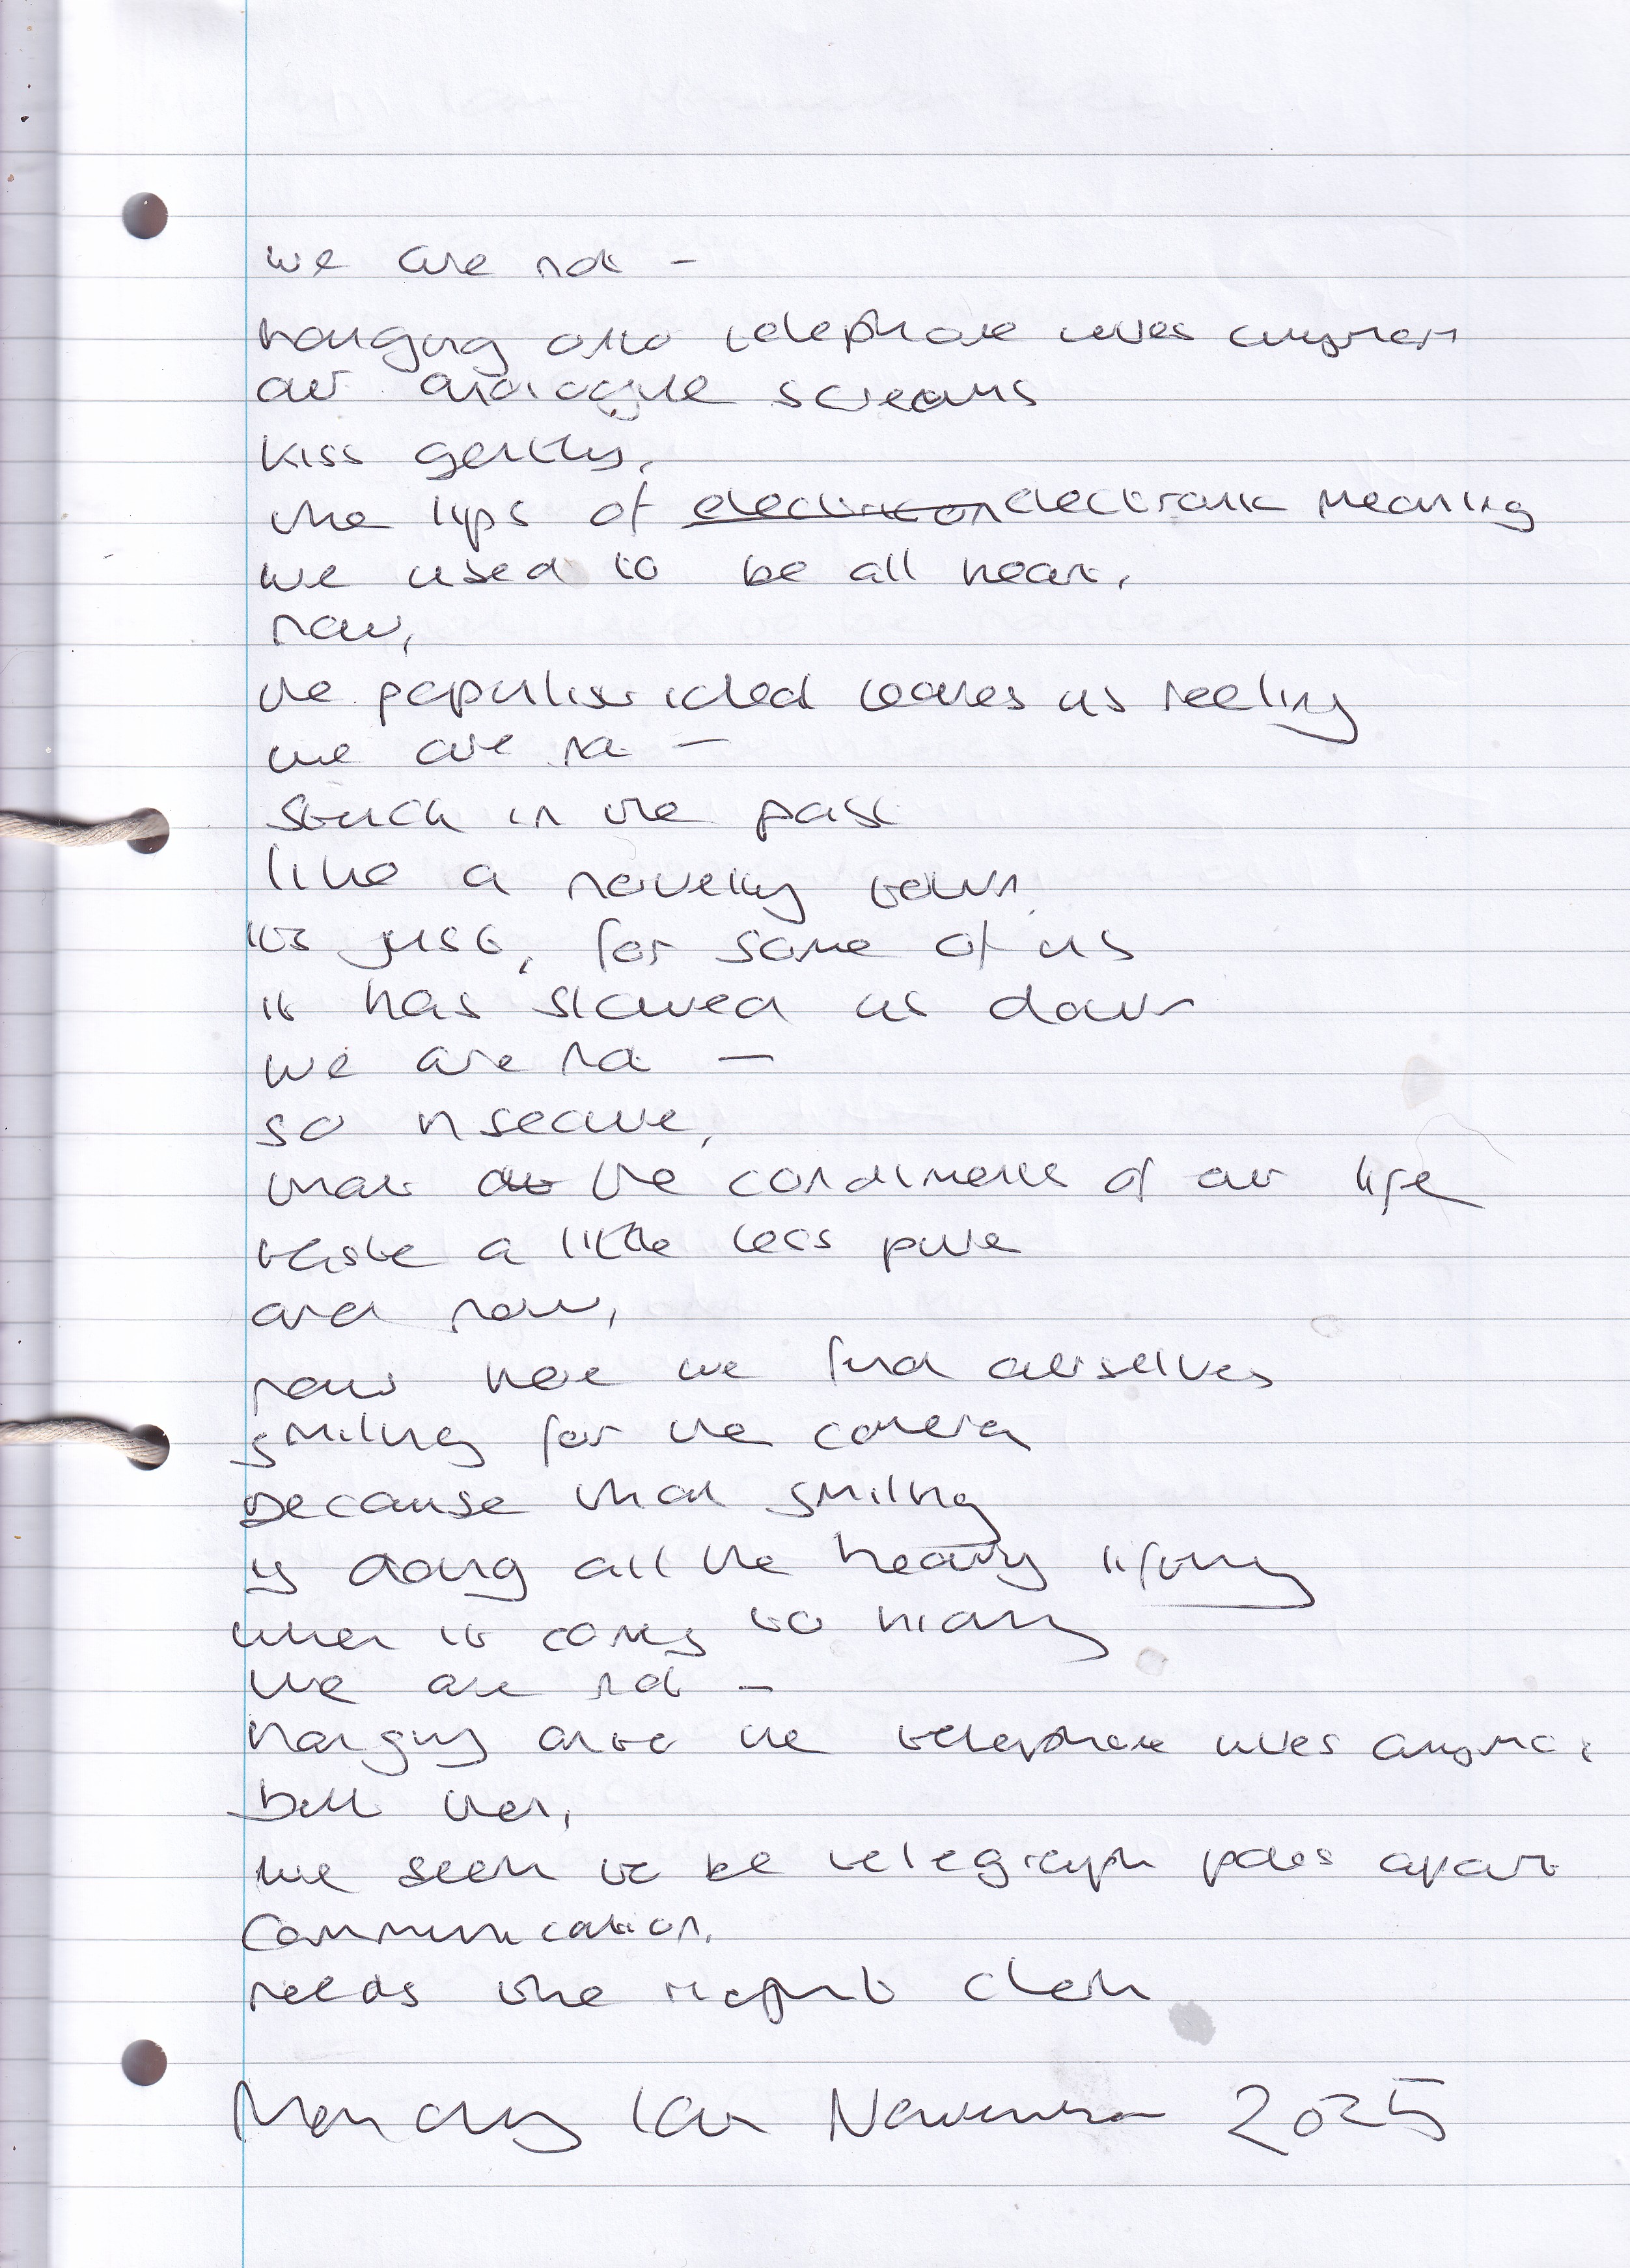 we are not -
hanging onto telephone wires anymore
our analogue screams
kiss gently,
the lips of electronic meaning
we used to be all heart,
now,
the populist leaves us reeling
we are not -
stuck in the past
like a novelty town
its just, for some of us
it has slowed us down
we are not -
so insecure,
that the condiments of our life
taste a little less pure
and now,
now here we find ourselves
smiling for the camera
because that smiling
is doing all the heavy lifting
when it comes to many
we are not -
hanging onto the telephone wires anymore
but then,
we seem to be telegraph poles apart
Communication,
needs the right
Monday November 2025